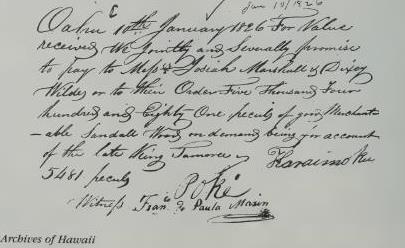 Jan 10/1826
Oahu 10th January 1826 For Value
received We Jointly and Severally promise
to pay to Messrs Josiah Marshall & Dixey
Wildes or to their Order Five Thousand Four
hundred and Eighty One peculs of good Merchant
-able Sandall Wood on demand being for account
of the late King Tamoree
Karaimoku
5481 peculs
Poki
Witness Franco de Paula Marin
Archives of Hawaii